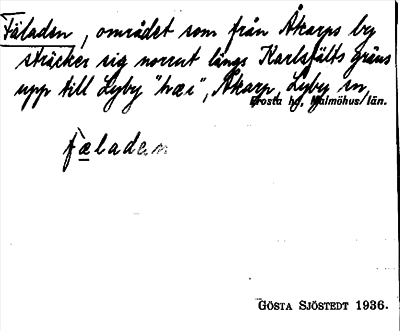 Fäladen, området som från Åkarps by
sträcker sig norrut längs Karlsfälts gräns
upp till Lyby "hæi", Åkarp, Lyby sn,
Frosta hd, Malmöhus län.
fæladen
GÖSTA SJÖSTEDT 1936.